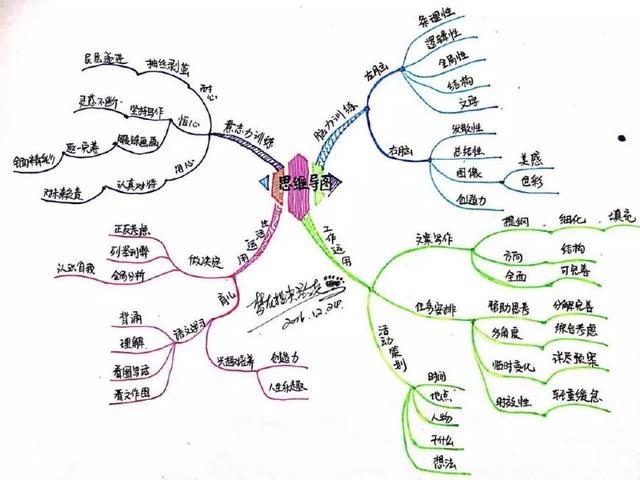 思维导图
脑力训练
左脑
条理性
逻辑性
全局性
结构
文字
右脑
发散性
总结性
图像
美感
色彩
创造力
工作运用
文案写作
提纲
细化
填充
方向
结构
全面
可完善
任务安排
帮助思考
分解完善
多角度
综合考虑
临时变化
详尽预案
时效性
轻重缓急
活动策划
时间
地点
人物
干什么
想法
生活运用
做决定
正反考虑
列举利弊
全局分析
认识自我
育儿
语文学习
背诵
理解
看图写话
看文作图
兴趣培养
创造力
人生乐趣
意志力训练
耐心
抽丝剥茧
层层递进
恒心
坚持写作
灵感不断
锻炼画画
逐一完善
用心
认真对待
2016.12.24